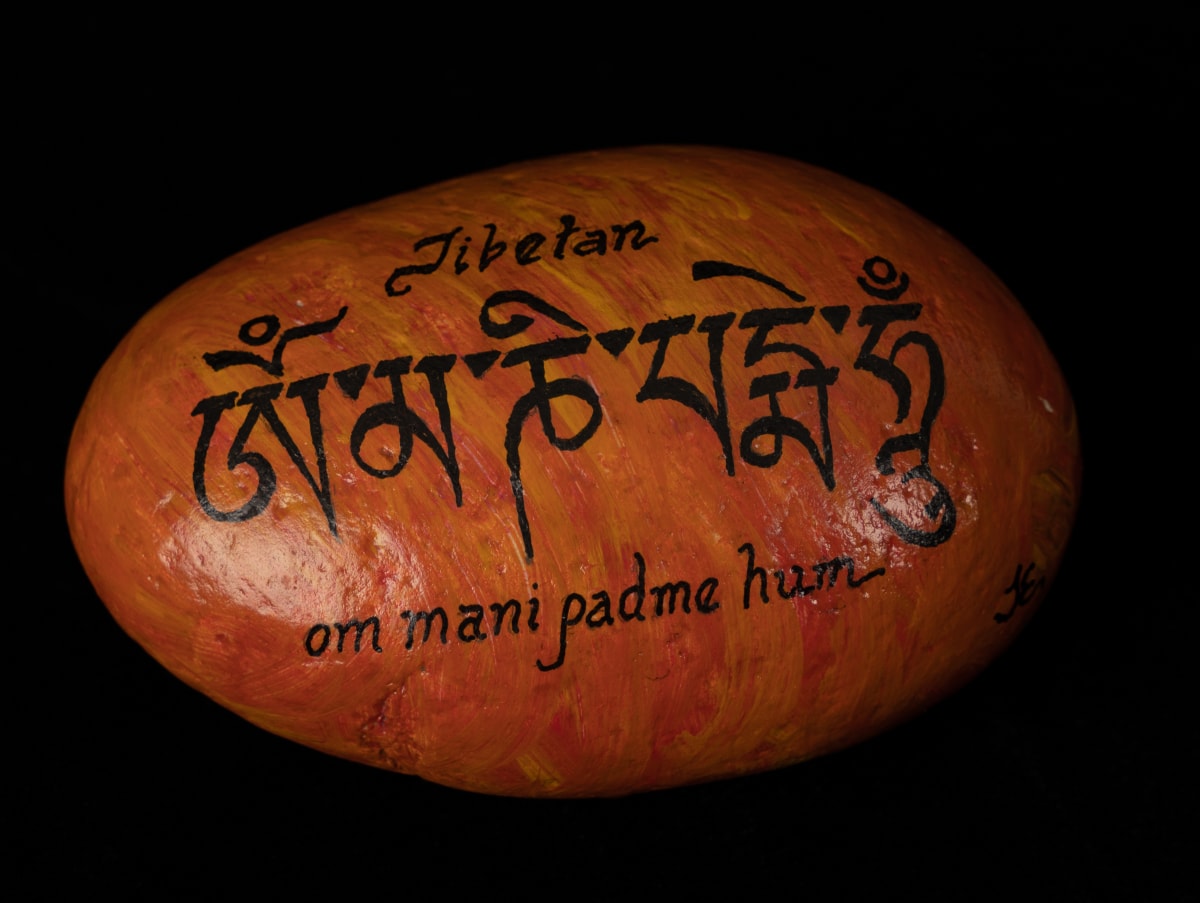 Tibetan
ཨོཾ་མ་ཎི་པདྨེ་ཧཱུྃ
om mani padme hum